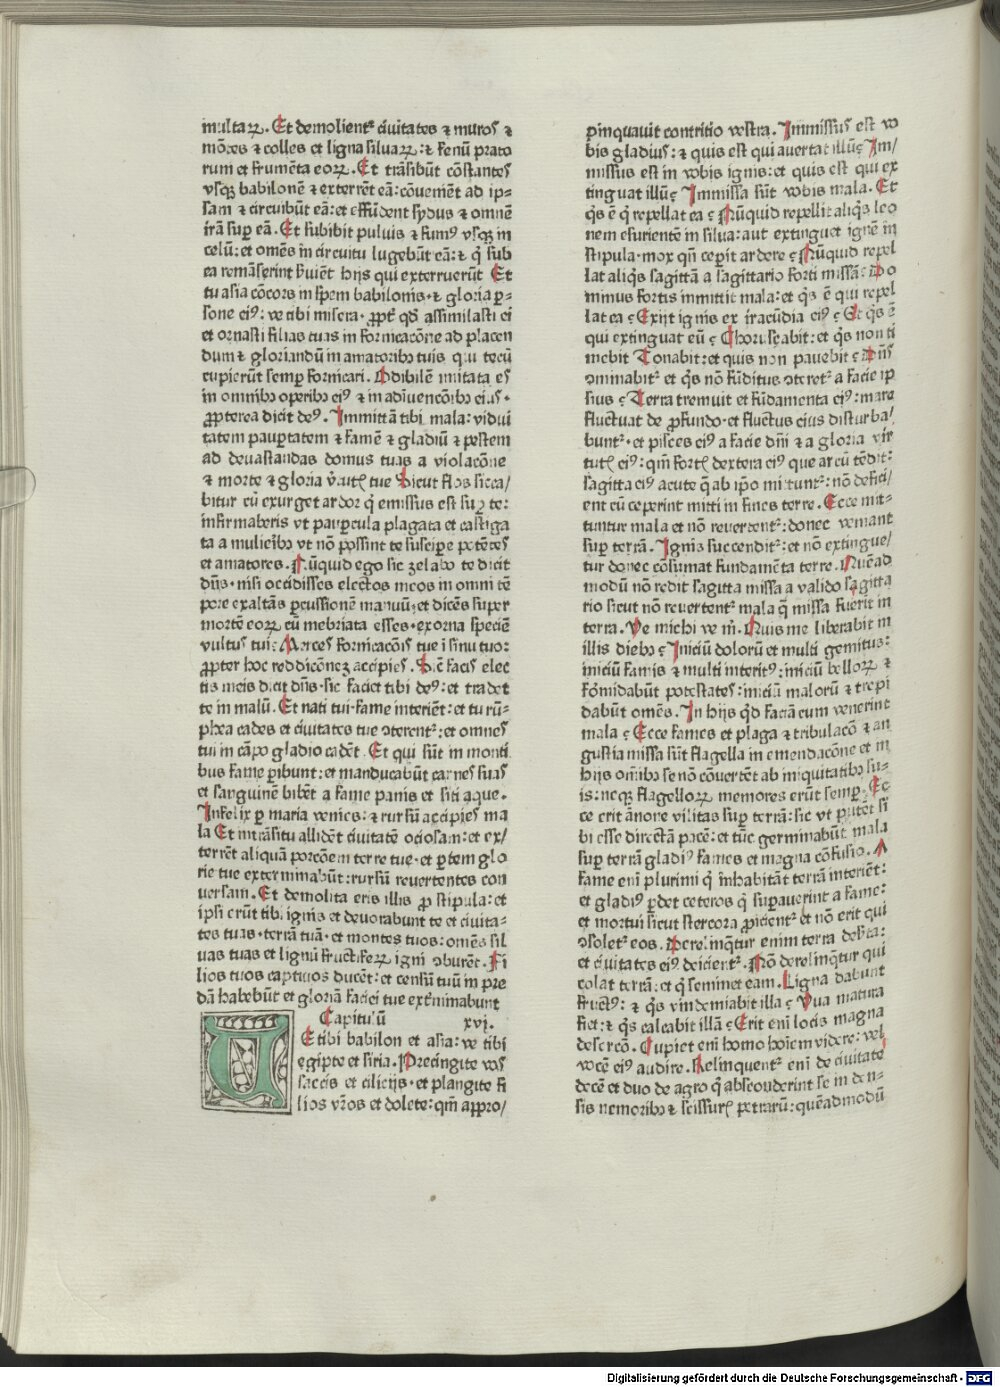 multaꝝ. Et demolient᷑ ciuitates ⁊ muros ⁊
mōtes ⁊ colles et ligna siluaꝝ: ⁊ fenū prato
rum et frumēta eoꝝ. Et trāsibūt cōstantes
vsqꝫ babilonē ⁊ exterrēt eā: cōuenient ad ip-
sam ⁊ circuibūt eā: et effūdent sydus ⁊ omnē
irā suꝑ eā. Et subibit puluis ⁊ fumꝰ vsqꝫ in
celū: et omēs in circuitu lugebūt eā: ⁊ q̄ sub
ea remāserint ẜuiēt hijs qui exterruerūt Et
tu asia cōcors in spem babilonis· ⁊ gloria ꝑ-
sone eiꝰ: ve tibi misera· ꝓpt᷑ qd̄ assimilasti ei
et ornasti filias tuas in fornicacōne ad placen
dum ⁊ gloriandū in amatoribꝫ tuis qui tecū
cupierūt semꝑ fornicari. Odibilē imitata es
in omnibꝫ operibꝫ eiꝰ ⁊ in adīuencōibꝫ eius·
ꝓpterea dicit deꝰ. Immittā tibi mala: vidui
tatem paupertatem ⁊ famē ⁊ gladiū ⁊ pestem
ad deuastandas domus tuas a violacōne
⁊ morte ⁊ gloria v̄tutꝭ tue Sicut flos sicca/
bitur cū exurget ardor q̄ emissus est suꝑ te:
infirmaberis vt paupercula plagata et castiga
ta a mulieribꝫ vt nō possint te suscipere potētes
et amatores. Nūquid ego sic zelabo te dicit
dn̄s· nisi occidisses electos meos in omni tē
pore exaltās ꝑcussionē manuū: et dicēs super
mortē eoꝝ cū inebriata esses· exorna speciē
vultus tui: Merces fornicacōis tue ī sinu tuo:
ꝓpter hoc reddicōneꝫ accipies. Sic̄ facis elec
tis meis dicit dn̄s· sic faciet tibi deꝰ: et tradet
te in malū. Et nati tui· fame interiēt: et tu rū-
phea cades et ciuitates tue ꝯterent᷑: et omnes
tui in cāpo gladio cadēt. Et qui sūt in monti
bus fame ꝑibunt: et manducabūt carnes suas
et sanguinē bibēt a fame panis et siti aque.
Infelix ꝑ maria venies: ⁊ rursū accipies ma
la Et intrāsitu allidēt ciuitatē ociosam: et ex/
terrēt aliquā porcōem terre tue· et ꝑtem glo
rie tue exterminabūt: rursū reuertentes con
uersam. Et demolita eris illis ꝓ stipula: et
ipsi erūt tibi ignis et deuorabunt te et ciuita-
tes tuas· terrā tuā· et montes tuos: omēs sil
uas tuas et lignū fructifeꝝ igni ꝯburēt. Fi
lios tuos captiuos ducēt: et censū tuū in pre
dā habebūt et gloriā faciei tue ext᷑minabunt
Capitulū xvj.
VEtibi babilon et asia: ve tibi
egipte et siria. Precingite vos
saccis et cilicijs· et plangite fi
lios vr̄os et dolete: qm̄ appro/
pinquauit contritio vestra. Immissus est vo
bis gladius: ⁊ quis est qui auertat illū: Im/
missus est in vobis ignis: et quis est qui ex
tinguat illū: Immissa sūt vobis mala. Et
q̄s ē q̄ repellat ea: Nūquid repellit aliq̄s leo
nem esurientē in silua: aut extinguet ignē in
stipula· mox qn̄ ceperit ardere: Nūquid repel
lat aliq̄s sagittā a sagittario forti missā: Do
minus fortis immittit mala: et q̄s ē qui repel
lat ea: Exijt ignis ex iracūdia eiꝰ: Et q̄s ē
qui extinguat eū: Choruscabit: et q̄s non ti
mebit Tonabit: et quis non pauebit: Dn̄s
ꝯminabit᷑ et q̄s nō fūditus ꝯteret᷑ a facie ip
sius: Terra tremuit et fūdamenta eiꝰ: mare
fluctuat de ꝓfundo· et fluctus eius disturba/
bunt᷑· et pisces eiꝰ a facie dn̄i ⁊ a gloria vir
tutꝭ eiꝰ: qm̄ fortꝭ dextera eiꝰ que arcū tēdit:
sagitta eiꝰ acute q̄ ab ip̄o mittunt᷑: nō defici/
ent cū ceperint mitti in fines terre. Ecce mit-
tuntur mala et nō reuertent᷑: donec veniant
suꝑ terrā. Ignis succendit᷑: et nō extingue/
tur donec cōsumat fundamēta terre. Quēad
modū nō redit sagitta missa a valido sagitta
rio sicut nō reuertent᷑ mala q̄ missa fuerīt in
terra. Ve michi ve m̄. Quis me liberabit in
illis diebꝫ: Iniciū dolorū et multi gemitus:
iniciū famis ⁊ multi interitꝰ: iniciū belloꝝ ⁊
formidabūt potestates: iniciū malorū ⁊ trepi
dabūt omēs. In hijs q̄d faciā cum venerint
mala: Ecce fames et plaga ⁊ tribulacō ⁊ an
gustia missa sūt flagella in emendacōne et in
hijs om̄ibꝫ se nō cōuertēt ab iniquitatibꝫ su-
is: neqꝫ flagelloꝝ memores erūt semꝑ. Ec
ce erit ānone vilitas suꝑ terrā: sic vt putēt si
bi esse directā pacē: et tūc germinabūt mala
suꝑ terrā gladiꝰ fames et magna cōfusio. A
fame enī plurimi q̄ inhabitāt terrā interiēt:
et gladiꝰ ꝑdet ceteros q̄ suꝑauerint a fame:
et mortui sicut stercora ꝓicient᷑ et nō erit qui
ꝯsolet᷑ eos. Derelinq̄tur enim terra deẜta:
et ciuitates eiꝰ deicient᷑. Nō derelinq̄tur qui
colat terrā: et q̄ seminet eam. Ligna dabunt
fructꝰ: ⁊ q̄s vindemiabit illa: Vua matura
fiet: ⁊ q̄s calcabit illā: Erit enī locis magna
desercō. Cupiet enī homo hoīem videre: vel
vocē eiꝰ audire. Relinquent᷑ enī de ciuitate
decē et duo de agro q̄ absconderint se in den-
sis nemoribꝫ ⁊ scissurꝭ petrarū: quēadmodū
Digitalisierung gefördert durch die Deutsche Forschungsgemeinschaft - DFG